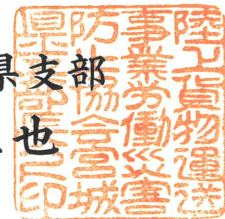 県支部
也
陸上貨物運送
事業労働災害
防止協会宮城
県支部長之印